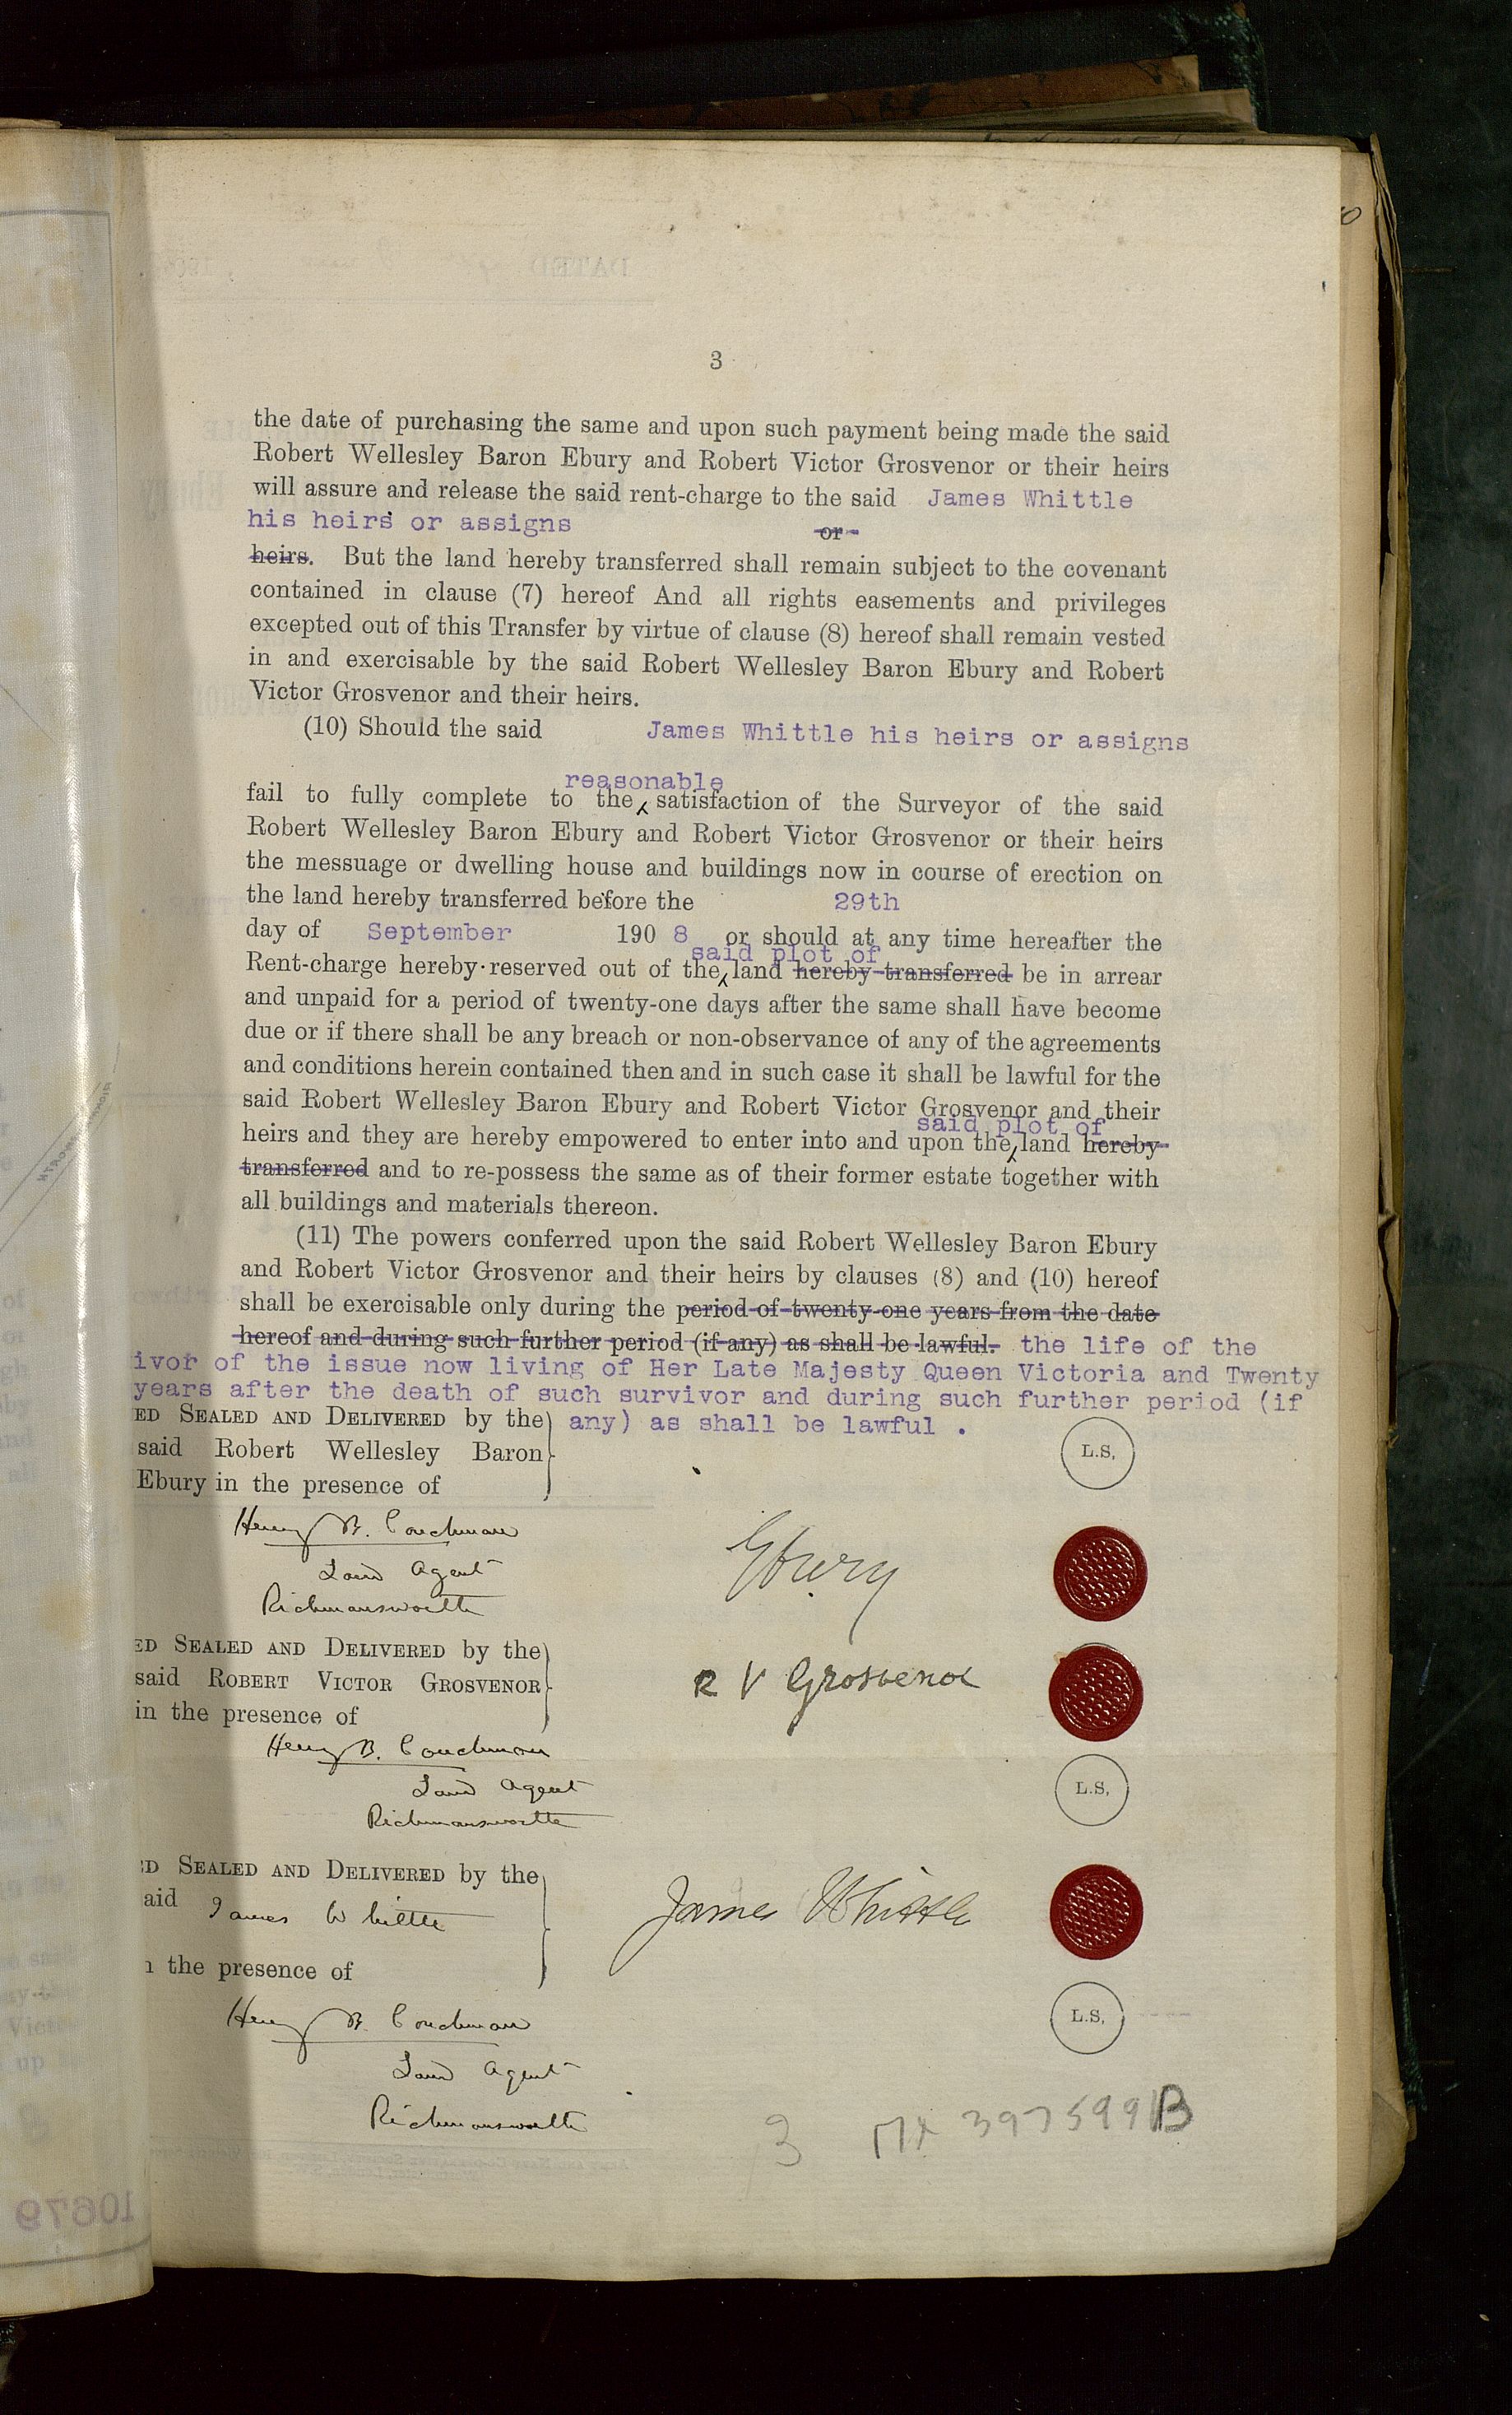 3
the date of purchasing the same and upon such payment being made the said
Robert Wellesley Baron Ebury and Robert Victor Grosvenor or their heirs
will assure and release the said rent-charge to the said James Whittle
his heirs or assigns or
heirs. But the land hereby transferred shall remain subject to the covenant
contained in clause (7) hereof And all rights easements and privileges
excepted out of this Transfer by virtue of clause (8) hereof shall remain vested
in and exercisable by the said Robert Wellesley Baron Ebury and Robert
Victor Grosvenor and their heirs.
(10) Should the said James Whittle his heirs or assigns
reasonable
fail to fully complete to the satisfaction of the Surveyor of the said
Robert Wellesley Baron Ebury and Robert Victor Grosvenor or their heirs
the messuage or dwelling house and buildings now in course of erection on
the land hereby transferred before the 29th
day of September 190 8 or should at any time hereafter the
said plot of
Rent-charge hereby reserved out of the land hereby transferred be in arrear
and unpaid for a period of twenty-one days after the same shall have become
due or if there shall be any breach or non-observance of any of the agreements
and conditions herein contained then and in such case it shall be lawful for the
said Robert Wellesley Baron Ebury and Robert Victor Grosvenor and their
said plot of
heirs and they are hereby empowered to enter into and upon the land hereby
transferred and to re-possess the same as of their former estate together with
all buildings and materials thereon.
(11) The powers conferred upon the said Robert Wellesley Baron Ebury
and Robert Victor Grosvenor and their heirs by clauses (8) and (10) hereof
shall be exercisable only during the period of twenty-one years from the date
hereof and during such further period (if any) as shall be lawful. the life of the
ivor of the issue now living of Her Late Majesty Queen Victoria and Twenty
years after the death of such survivor and during such further period (if
any) as shall be lawful .
ED SEALED AND DELIVERED by the
said Robert Wellesley Baron
Ebury in the presence of
L.S.
Henry B. Couchman
Land Agent
Rickmansworth
Ebury
ED SEALED AND DELIVERED by the
said ROBERT VICTOR GROSVENOR
in the presence of
R V Grosvenor
Henry B. Couchman
Land Agent
Rickmansworth
L.S.
ED SEALED AND DELIVERED by the
aid James Whittle
James Whittle
the presence of
Henry B. Couchman
Land Agent
Rickmansworth
L.S.
3 MX 397599 B
10679